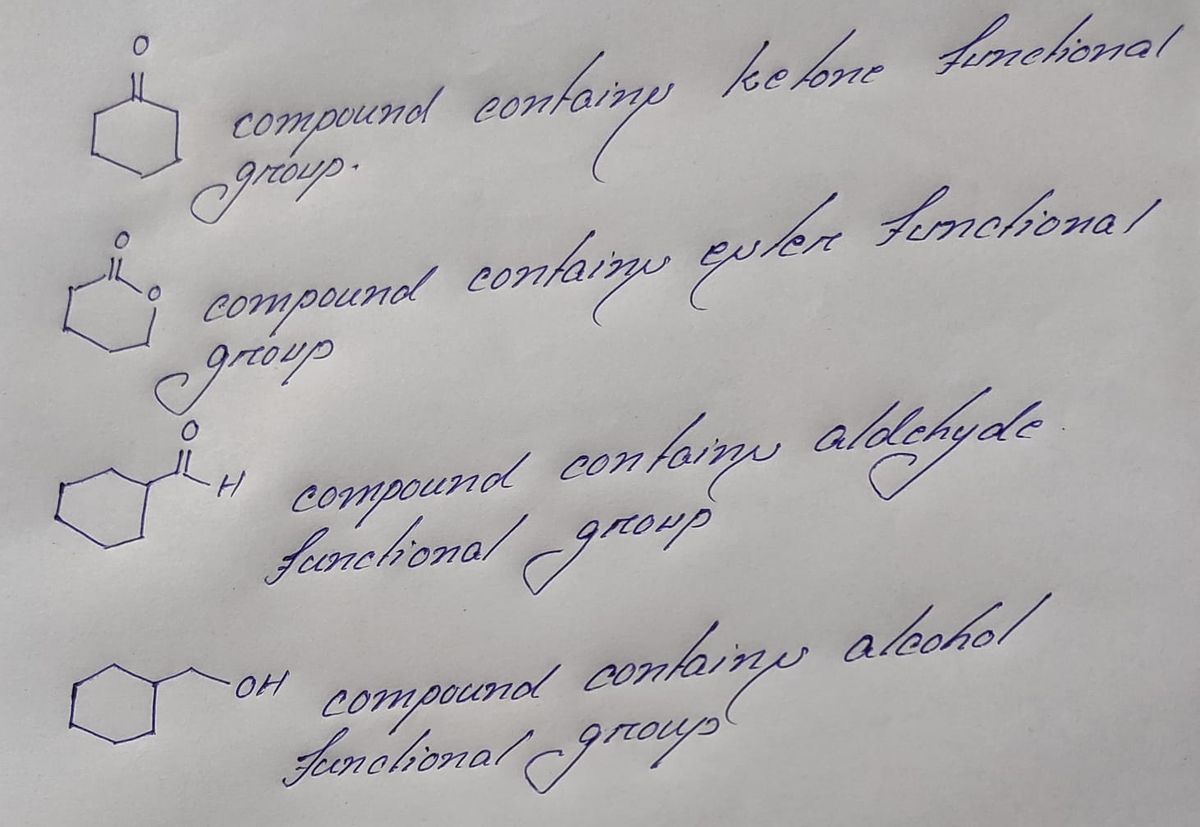 O
compound contains ketone functional
group.
O
O compound contains ester functional
group
O
H compound contains aldehyde
functional group
OH compound contains alcohol
functional group